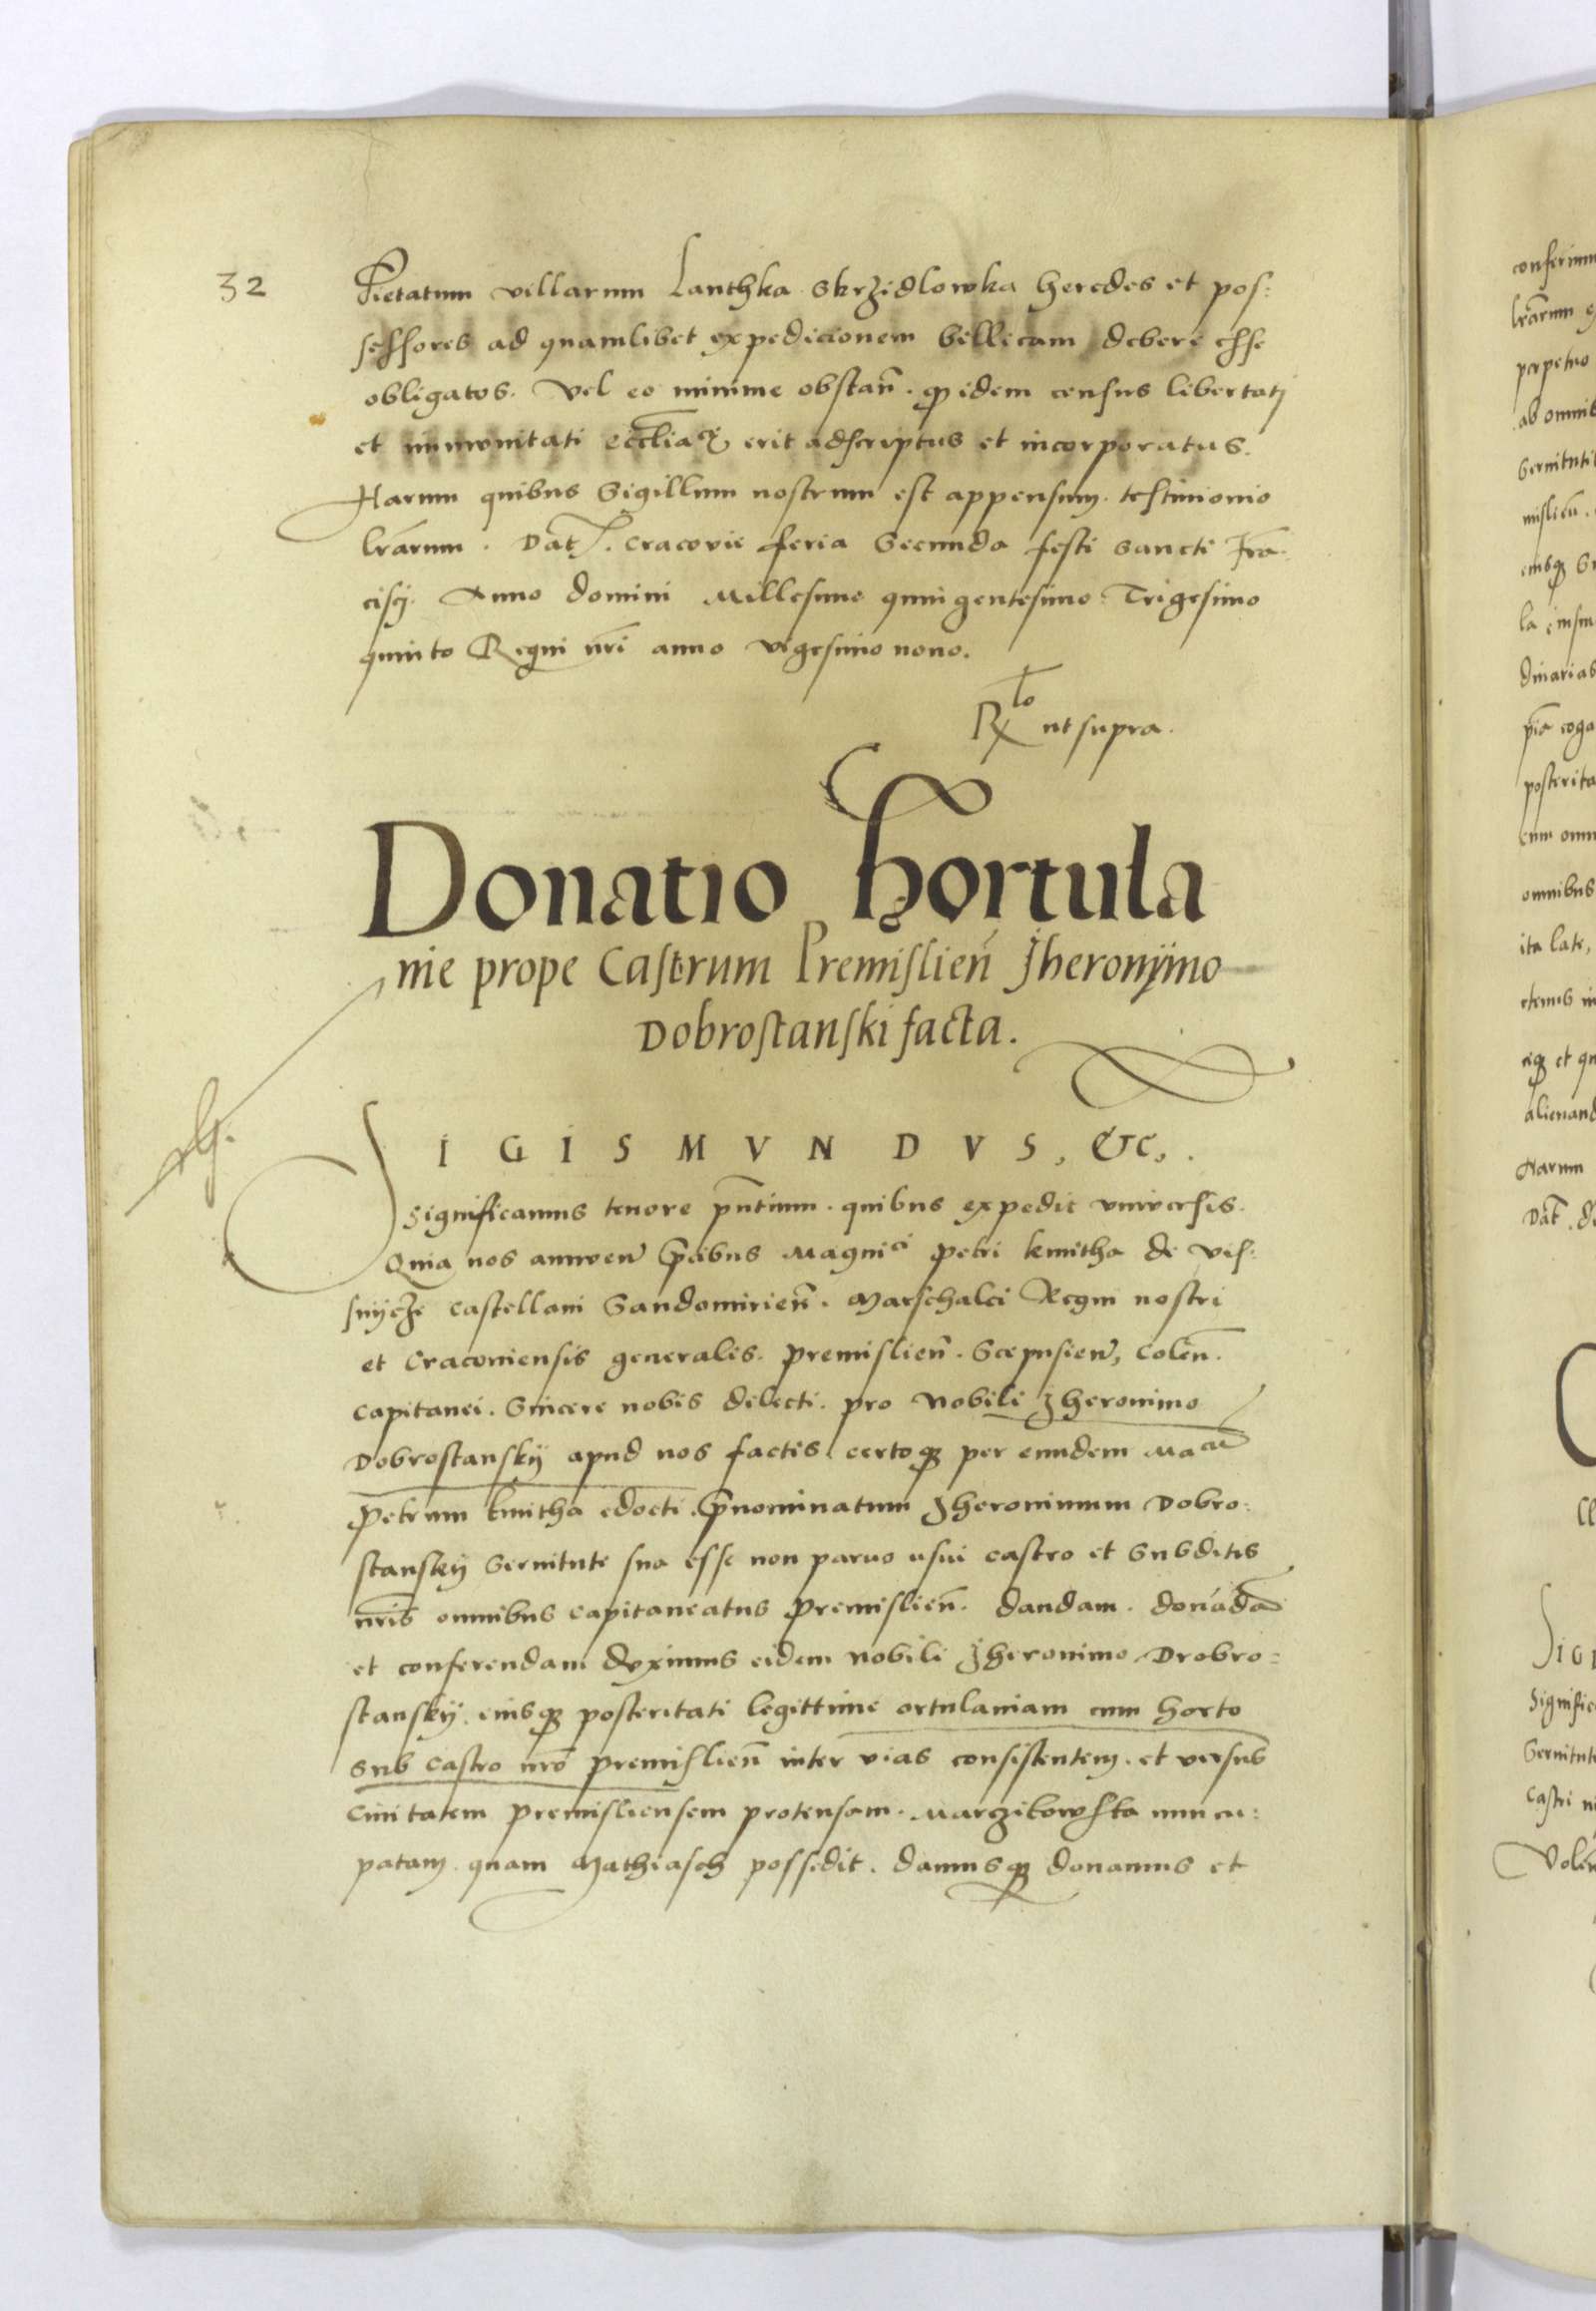 32
Dietatum villarum Lanthka Skrzidlowka heredes et pos:
sessores ad quamlibet expedicionem bellicam debere esse
obligatos. Vel eo minime obstan̄. qꝫ idem census libertati
et immunitati eccl̄iaꝝ erit adscriptus et incorporatus.
Harum quibus Sigillum nostrum est appensum. testimonio
lr̄arum. Dat̄. Cracovie feria Secunda festi Sancti Fra-
cisci. Anno domini Millesimo quingentesimo Trigesimo
quinto Regni nr̄i anno vigesimo nono.
Rlo ut supra.
Donatio hortula
nie prope Castrum Premislien̄ Jheronijmo
Dobrostanski facta.
SIGISMVNDVS, &c,.
Significamus tenore pn̄tium. quibus expedit vniversis.
Quia nos annuen̄ p̄cibus Magnici Petri kmitha de Vis:
snijcze Castellani Sandomirien̄. Marschalci Regni nostri
et Cracouiensis generalis. Premislien̄. Scepusien̄, Colen̄.
Capitanei. Sincere nobis dilecti. pro Nobili Jheronimo
Dobrostanskij apud nos factis. certoqꝫ per eundem Macū
Petrum kmitha edocti. p̄nominatum Jheronimum Dobro:
stanskij Seruitute sua esse non paruo usui castro et Subditis
nr̄is omnibus capitaneatus Premislien̄. dandam. donādā
et conferendam duximus eidem Nobili Jheronimo Drobro:
stanskij. eiusqꝫ posteritati legittime ortulaniam cum horto
Sub Castro nr̄o Premislien̄ inter vias consistentem. et versus
Ciuitatem Premisliensem protensam. Marzikowska nuncu:
patam. quam Mathiasch possedit. damusqꝫ donamus et